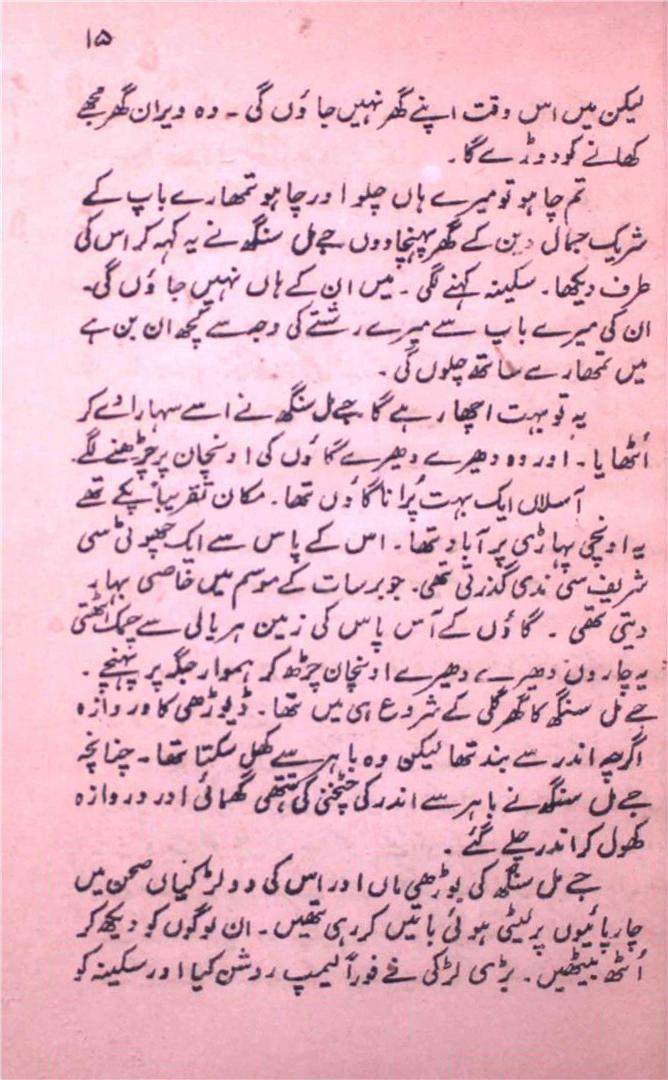 ۱۵
لیکن میں اس وقت اپنے گھر نہیں جاؤں گی ۔ وہ ویران گھر مجھے
کھانے کو دوڑے گا ۔
تم چاہو تو میرے ہاں چلو اور چاہو تمھارے باپ کے
شریک جمال دین کے گھر پہنچا دوں جے مل سنگھ نے یہ کہہ کر اس کی
طرف دیکھا۔ سکینہ کہنے لگی ۔ میں ان کے ہاں نہیں جاؤں گی۔
ان کی میرے باپ سے میرے رشتے کی وجہ سے کچھ ان بن ہے
میں تمھارے ساتھ چلوں گی ۔
یہ تو بہت اچھا رہے گا جے مل سنگھ نے اسے سہارا دے کر
اُٹھایا ۔ اور وہ دھیرے دھیرے گاؤں کی اونچان پر چڑھنے لگے
آسلاں ایک بہت پُرانا گاؤں تھا۔ مکان تقریباً پکے تھے
یہ اونچی پہاڑی پر آباد تھا۔ اس کے پاس سے اک چھوٹی سی
شریف سی ندی گذرتی تھی۔ جو برسات کے موسم میں خاصی بہار
دیتی تھی ۔ گاؤں کے آس پاس کی زمین ہریالی سے چمک اٹھتی
یہ چاروں دھیرے دھیرے اونچان چڑھ کر ہموار جگہ پر پہنچے ۔
جے مل سنگھ کا گھر گلی کے شروع ہی میں تھا۔ ڈیوڑھی کا دروازہ
اگرچہ اندر سے بند تھا لیکن وہ باہر سے کھل سکتا تھا۔ چنانچہ
جے مل سنگھ نے باہر سے اندر کی چٹخنی کی ہتھی گھمائی اور دروازہ
کھول کر اندر چلے گئے ۔
جے مل سنگھ کی بوڑھی ماں اور اس کی دو لڑکیاں صحن میں
چارپائیوں پر لیٹی ہوئی باتیں کر رہی تھیں ۔ ان لوگوں کو دیکھ کر
اُٹھ بیٹھیں ۔ بڑی لڑکی نے فوراً لیمپ روشن کیا اور سکینہ کو